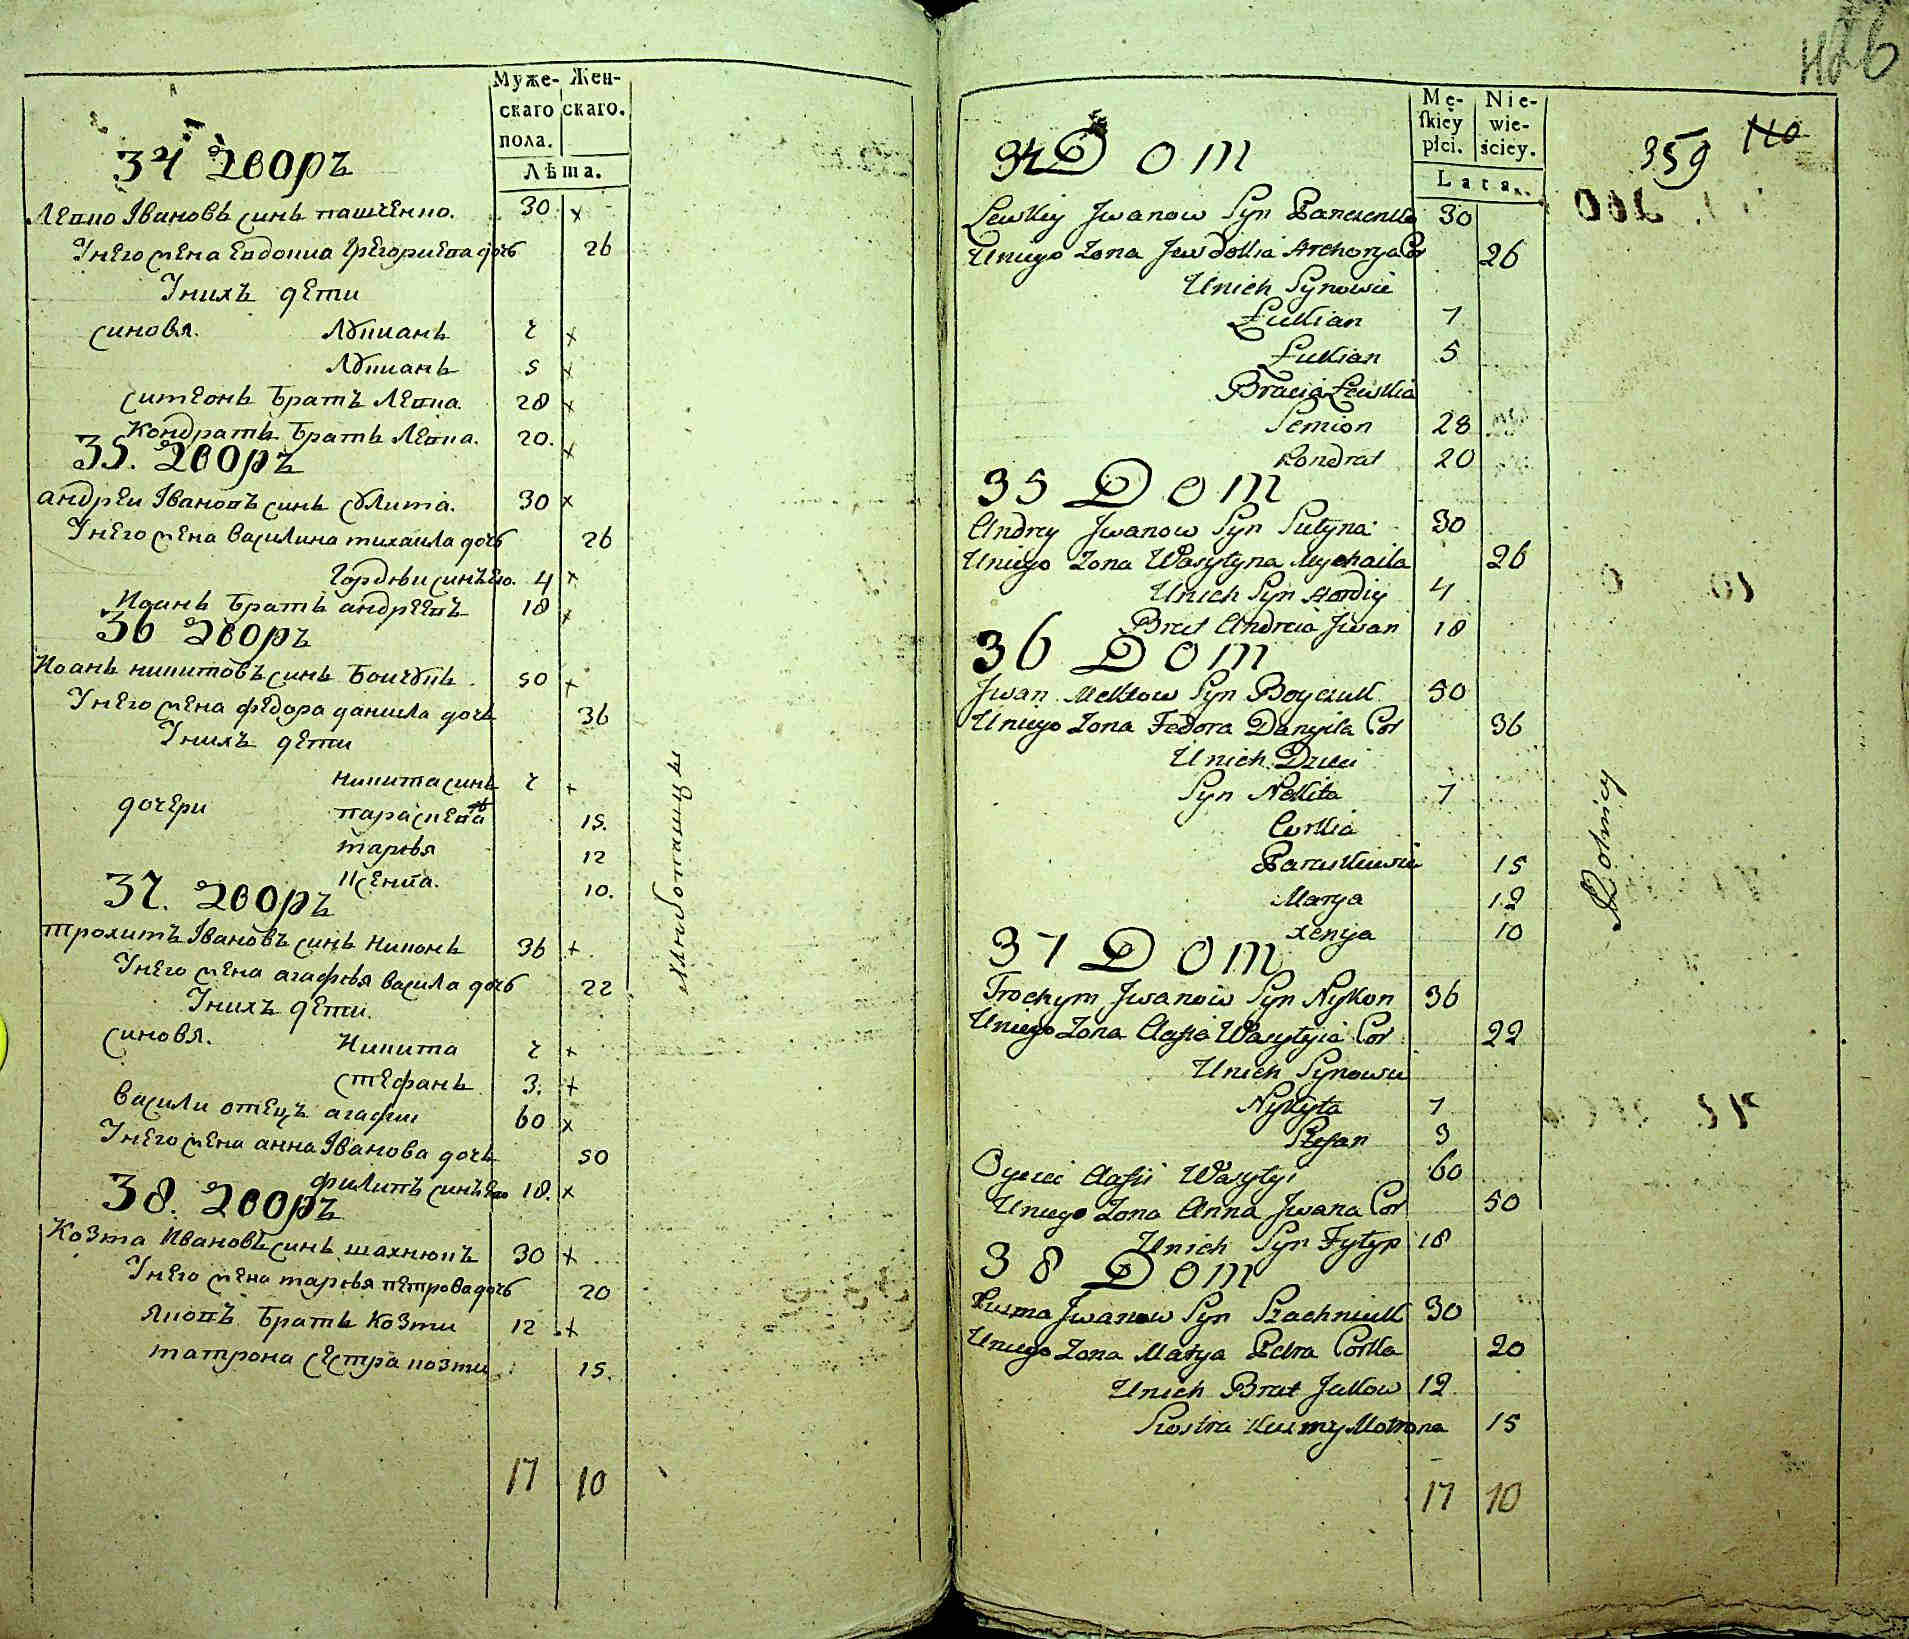 Муже- Жен-
скаго скаго.
пола.
Лѣта.
34 Дворъ
Левко Івановъ синъ пащенко. 30
Унего жена Евдокиа Григориева дочь 26
Унихъ дети
синовя. Лукианъ 7
Лукианъ 5
симеонъ братъ Левка 28
Кондратъ братъ Левка. 20.
35. Дворъ
андреи Івановъ синъ сулима. 30
Унего жена василина михаила дочь 26
Гордѣи синъ Его. 4
Иоанъ братъ андреевъ 18
36 Дворъ
Иоанъ никитовъ синъ Боичукъ. 50
Унего жена федора данила дочь 36
Унихъ дети
никита синъ 7
дочери параскева 15.
марья 12
ксения. 10.
37. Дворъ
трохимъ Івановъ синъ Никонъ 36
Унего жена агафья васила дочь 22
Унихъ дети.
синовя. Никита 7
стефанъ 3.
васили отецъ агафии 60
Унего жена анна Іванова дочь 50
филипъ синъ Его 18.
38. Дворъ
Козма Ивановъ синъ шахнюкъ 30
Унего жена марья петрова дочь 20
яковъ братъ козми 12
матрона сестра козми 15.
17 10
хлибопашцы
426
Mę- Nie-
ſkiey wie-
płci. ściey.
Lata.
359 110
34 Dom
Lewkiy Jwanow Syn Panczenko 30
Uniego Zona Jewdokia Archorya Cor 26
Unich Synowie
Łukian 7
Łukian 5
Bracia Lewkia
Semion 28
Kondrat 20
35 Dom
Andrey Jwanow Syn Sulyna 30
Uniego Zona Wasylyna Mychaila 26
Unich Syn Hordiy 4
Brat Andreia Jwan 18
36 Dom
Jwan Nekitow Syn Boyczuk 50
Uniego Zona Fedora Danyila Cor 36
Unich Dzieci
Syn Nekita 7
Curkia
Paraskiewia 15
Marya 12
xenya 10
37 Dom
Trochym Jwanow Syn Nykon 36
Uniego Zona Agafia Wasylyia Cor 22
Unich Synowie
Nykyta 7
Stefan 3
Oyciec Agafii Wasylyi 60
Uniego Zona Anna Jwana Cor 50
Unich Syn Fylyp 18
38 Dom
Kuzma Jwanow Syn Szachniuk 30
Uniego Zona Marya Petra Corka 20
Unich Brat Jakow 12
Siostra Kuzmy Motrona 15
17 10
Rolnicy